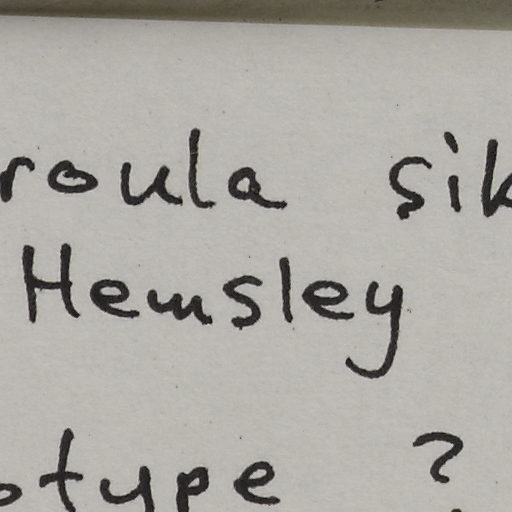 roula sik
Hemsley
otype ?